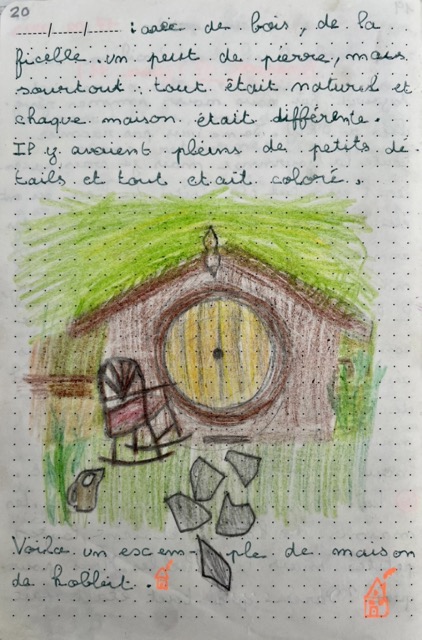 20
---/---/--- : avec de bois, de la
ficelle un petit de pierre, mais
sourtout : tout était naturel et
chaque maison était différente.
Il y avaient pleins de petits dé
tails et tout etait coloré.
Voila un escem- ple de maison
de hobbit.